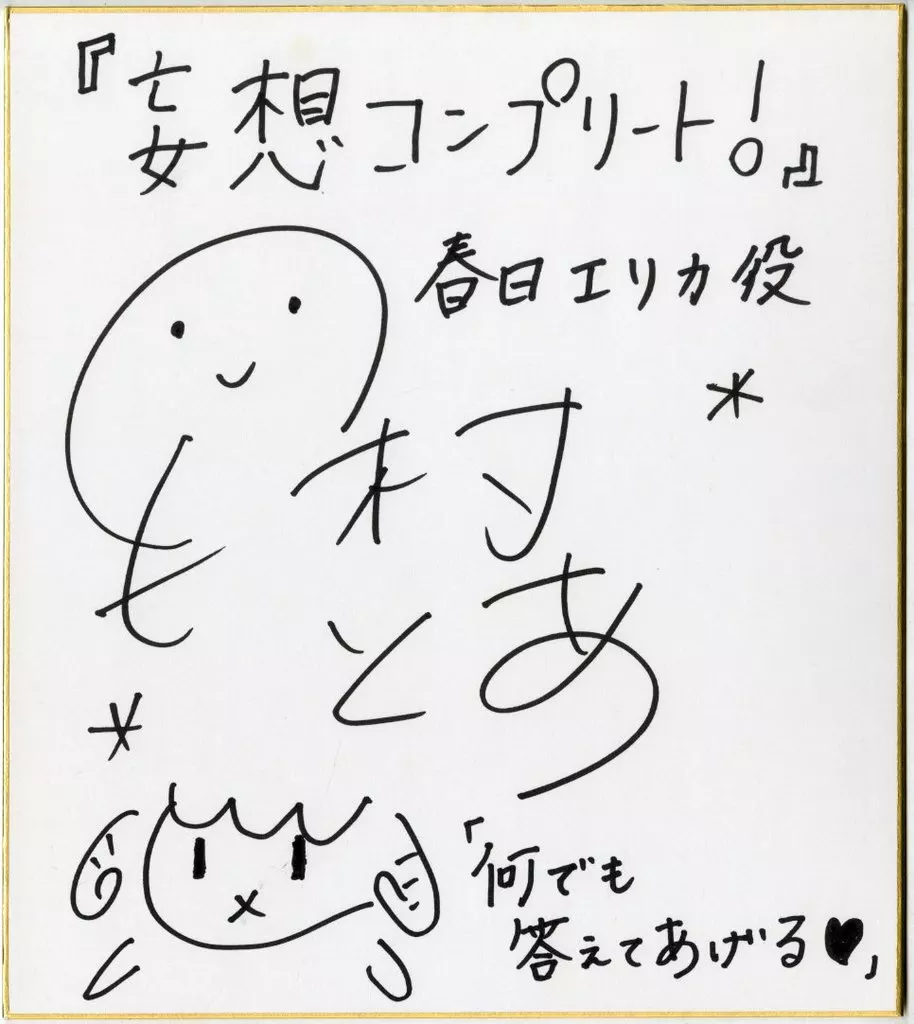 『妄想コンプリート!』
春日エリカ役
も村
とあ
「何でも
答えてあげる♥」